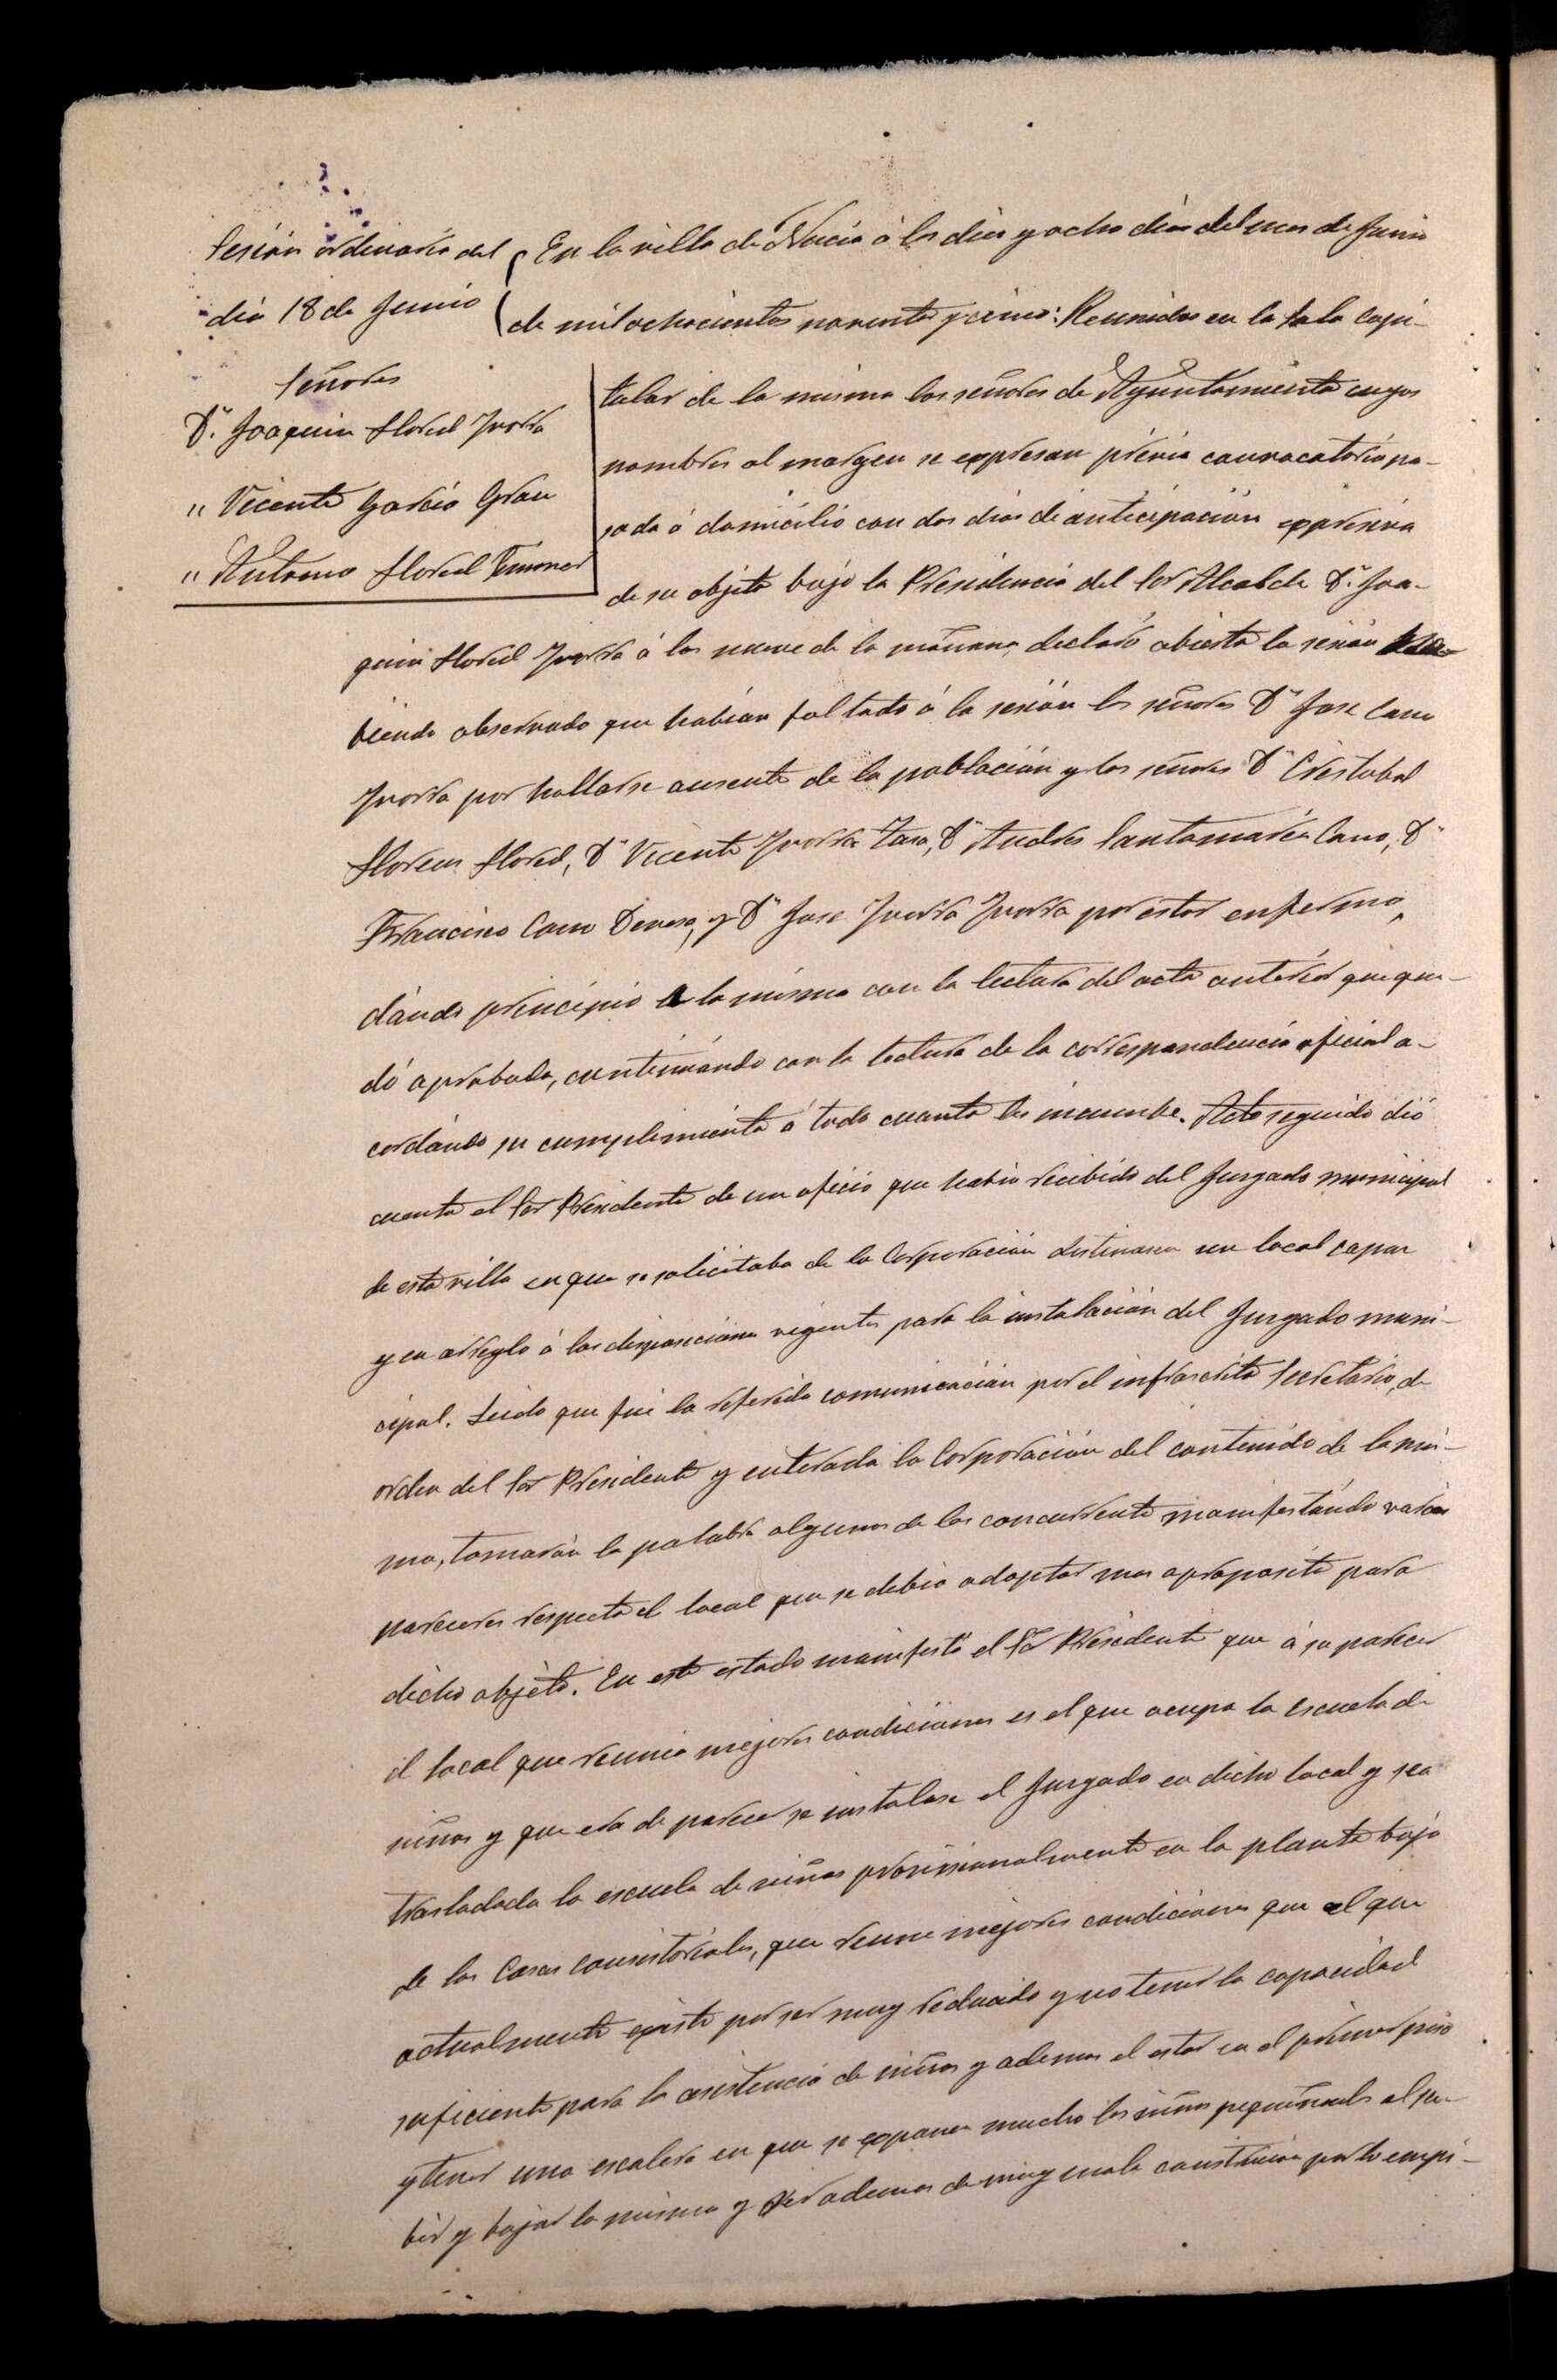 Sesión ordinaria del
día 18 de Junio
Señores
Dn. Joaquin Llored Yvorra
" Vicente García Grau
" Antonio Llored Timoner
En la villa de Nucia á los diez y ocho dias del mes de Junio
de mil ochocientos noventa y cinco: Reunidos en la Sala Capi-
tular de la misma los señores de Ayuntamiento cuyos
nombres al margen se expresan prévia convocatoria pa-
sada á domicilio con dos dias de anticipación expresiva
de su objeto bajo la Presidencia del Sor Alcalde Dn. Joa-
quin Llored Yvorra á las nueve de la mañana, declaró abierta la sesión
biendo observado que habian faltado á la sesión los señores Dn Jose Cano
Yvorra por hallarse ausente de la población y los señores Dn Cristobal
Llorens Llored, Dn Vicente Yvorra Zara, Dn Andres Santamaría Cano, Dn
Francisco Cano Devesa, y Dn Jose Yvorra Yvorra por estar enfermo,
dándo principio a la misma con la lectura del acta anterior que que-
dó aprobada, continuándo con la lectura de la correspondencia oficial a-
cordándo su cumplimiento á todo cuanto les incumbe. Acto seguido dió
cuenta el Sor Presidente de un oficio que habia recibido del Juzgado municipal
de esta villa en que se solicitaba de la Corporación destinasen un local capaz
y en arreglo á las disposiciones vigentes para la instalación del Juzgado muni-
cipal. Leido que fué la referida comunicación por el infrascrito Secretario, de
orden del Sor Presidente y enterada la Corporación del contenido de la mis-
ma, tomarón la palabra algunos de los concurrente manifestándo varios
pareceres respecto el local que se debia adoptar mas aproposito para
dicho objéto. En este estado manifestó el Sor Presidente que á su parecer
el local que reunia mejores condiciones es el que ocupa la escuela de
niños y que era de parecer se instalase el Juzgado en dicho local y sea
trasladada la escuela de niños provisionalmente en la planta baja
de las Casas Consistoriales, que reune mejores condiciones que el que
actualmente existe por ser muy reducido y no tener la capacidad
suficiente para la asistencia de niños y ademas el estar en el primer piso
y tener una escalera en que se exponen mucho los niños pequeñuelos al su-
bir y bajar la misma y ser ademas de muy mala constrición por lo empi-